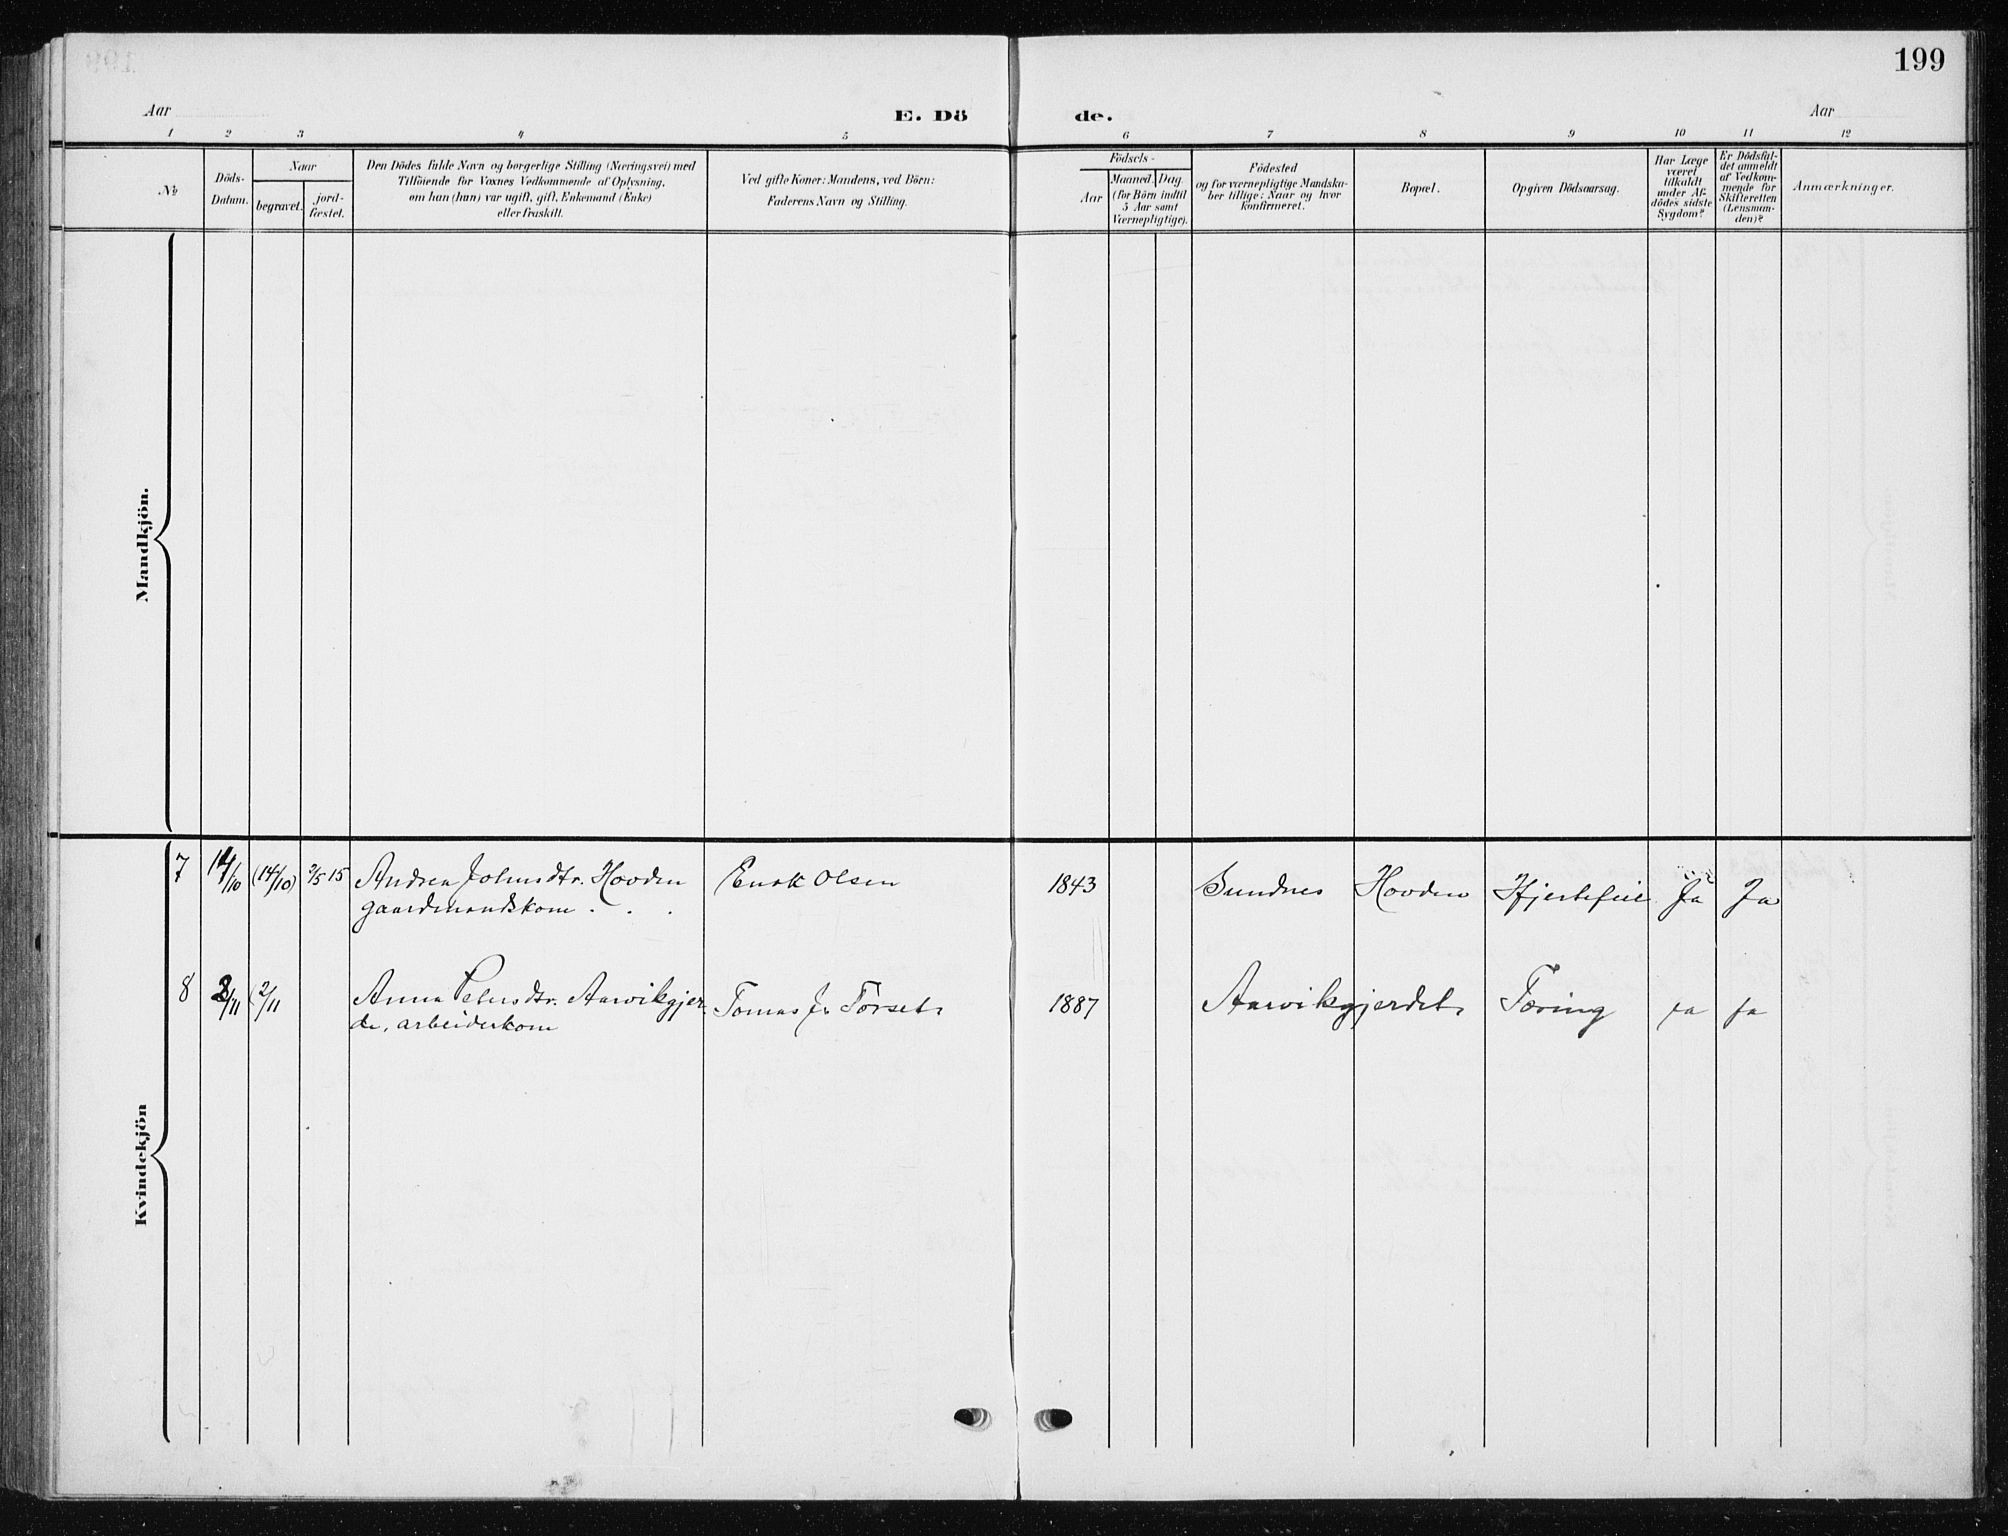 199
Aar
E. Dö
de.
Aar
1 2 3 4 5 6 7 8 9 10 11 12
No
Döds-
Datum.
Naar
begravet.
jord-
fæstet.
Den Dödes fulde Navn og borgerlige Stilling (Næringsvei) med
Tilföiende for Voxnes Vedkommende af Oplysning,
om han (hun) var ugift, gift, Enkemand (Enke)
eller fraskilt.
Ved gifte Koner: Mandens, ved Börn:
Faderens Navn og Stilling.
Födsels-
Aar
Maaned.
Dag.
(for Börn indtil
5 Aar samt
Værnepligtige).
Födested
og for værnepligtige Mandska-
ber tillige: Naar og hvor
konfirmeret.
Bopæl.
Opgiven Dödsaarsag.
Har Læge
været
tilkaldt
under Af-
dödes sidste
Sygdom?
Er Dödsfal-
det anmeldt
af Vedkom-
mende for
Skifteretten
(Lensman-
den)?
Anmærkninger.
Mandkjön.
Kvindekjön
7 14/10 (14/10) 2/5 15 Andrea Johnsdtr. Hovden Enok Olsen 1843 Sundnes Hovden Hjertefeil Ja Ja
gaardmandskone
8 2/11 (2/11 Anna Petersdtr. Aarvikgjer- Tomas J. Torset 1887 Aarvikgjerdet Tæring ja ja
de, arbeiderkone